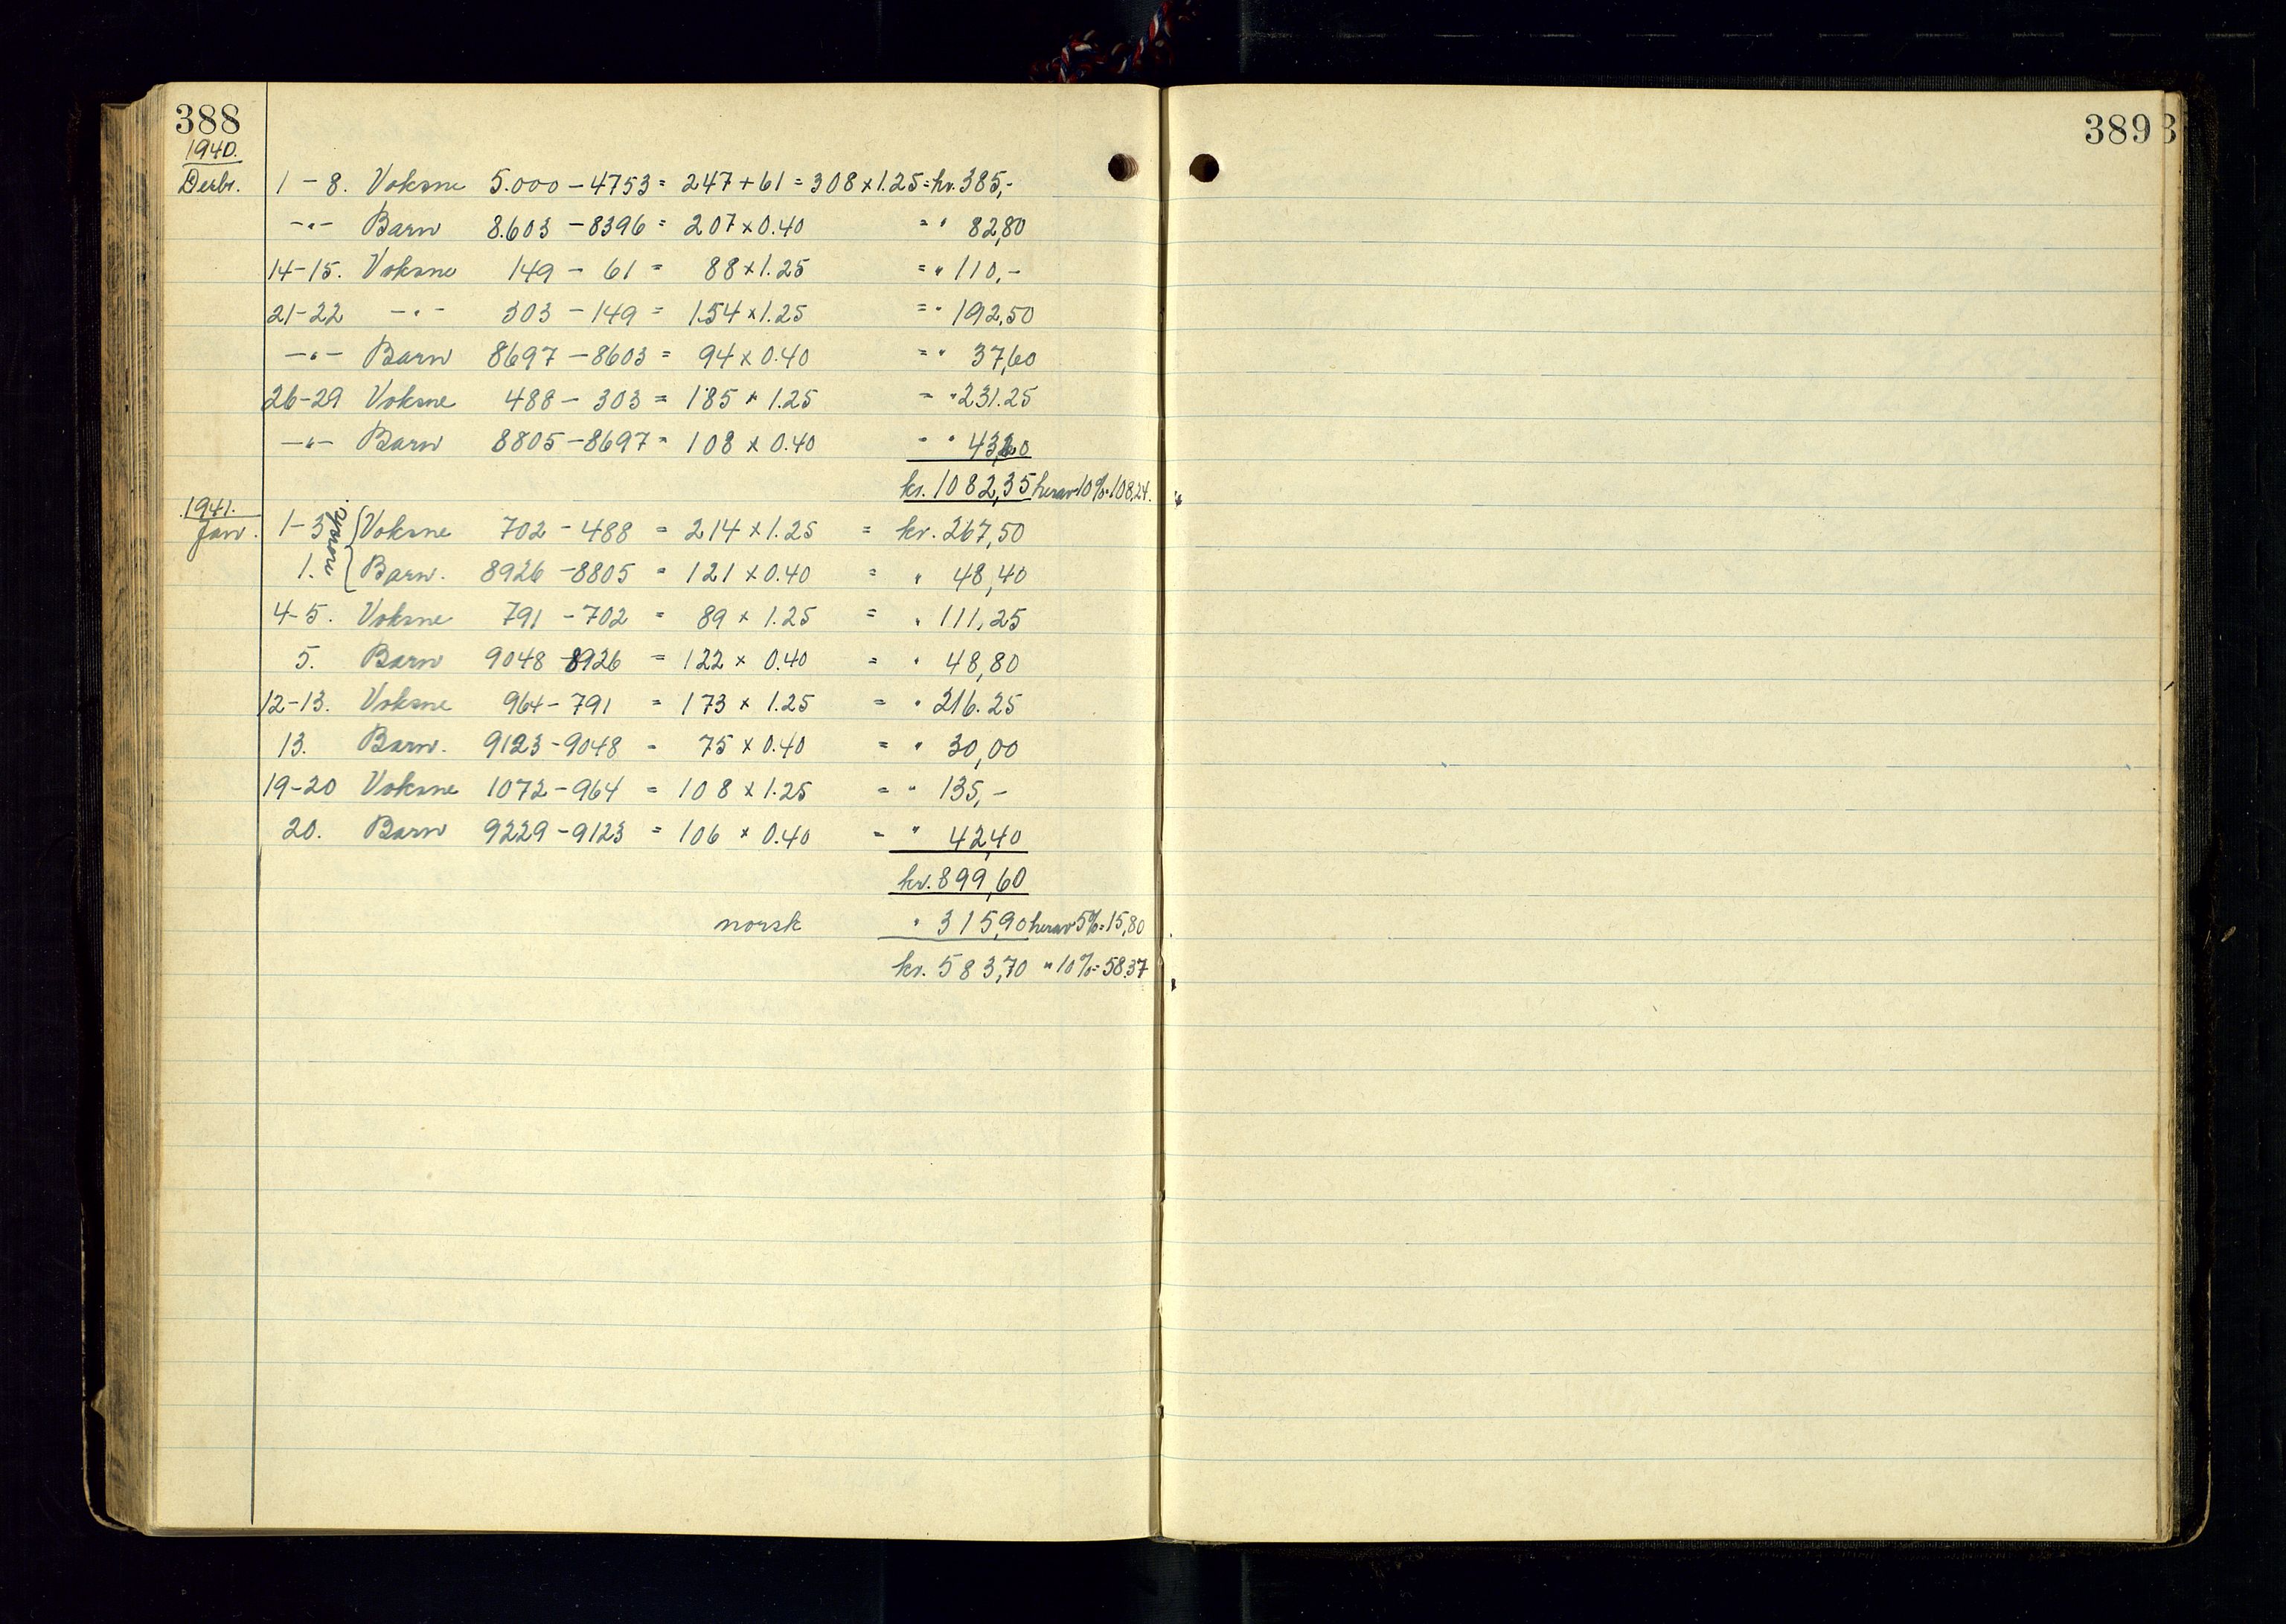 388
1940.
Desbr. 1 – 8. Voksne 5.000 – 4753 = 247 + 61 = 308 x 1.25 = kr. 385,-
-"- Barn 8.603 – 8396 = 207 x 0.40 = " 82,80
14-15. Voksne 149 – 61 = 88 x 1.25 = " 110,-
21-22 -"- 303 – 149 = 154 x 1.25 = " 192,50
-"- Barn 8697 – 8603 = 94 x 0.40 = " 37,60
26-29 Voksne 488 – 303 = 185 x 1.25 = " 231.25
-"- Barn 8805 – 8697 = 108 x 0.40 = " 43,20
kr. 1082,35 herav 10% = 108,24.
1941.
Jan. 1-3 norsk. Voksne 702 – 488 = 214 x 1.25 = kr. 267,50
1. Barn. 8926 – 8805 = 121 x 0.40 = " 48,40
4-5. Voksne 791 – 702 = 89 x 1.25 = " 111,25
5. Barn 9048 – 8926 = 122 x 0.40 = " 48,80
12-13. Voksne 964 – 791 = 173 x 1.25 = " 216.25
13. Barn. 9123 – 9048 = 75 x 0.40 = " 30,00
19-20 Voksne 1072 – 964 = 108 x 1.25 = " 135,-
20. Barn 9229 – 9123 = 106 x 0.40 = " 42,40
kr. 899,60
norsk " 315,90 herav 5% = 15,80
kr. 583,70 " 10% = 58.37
389